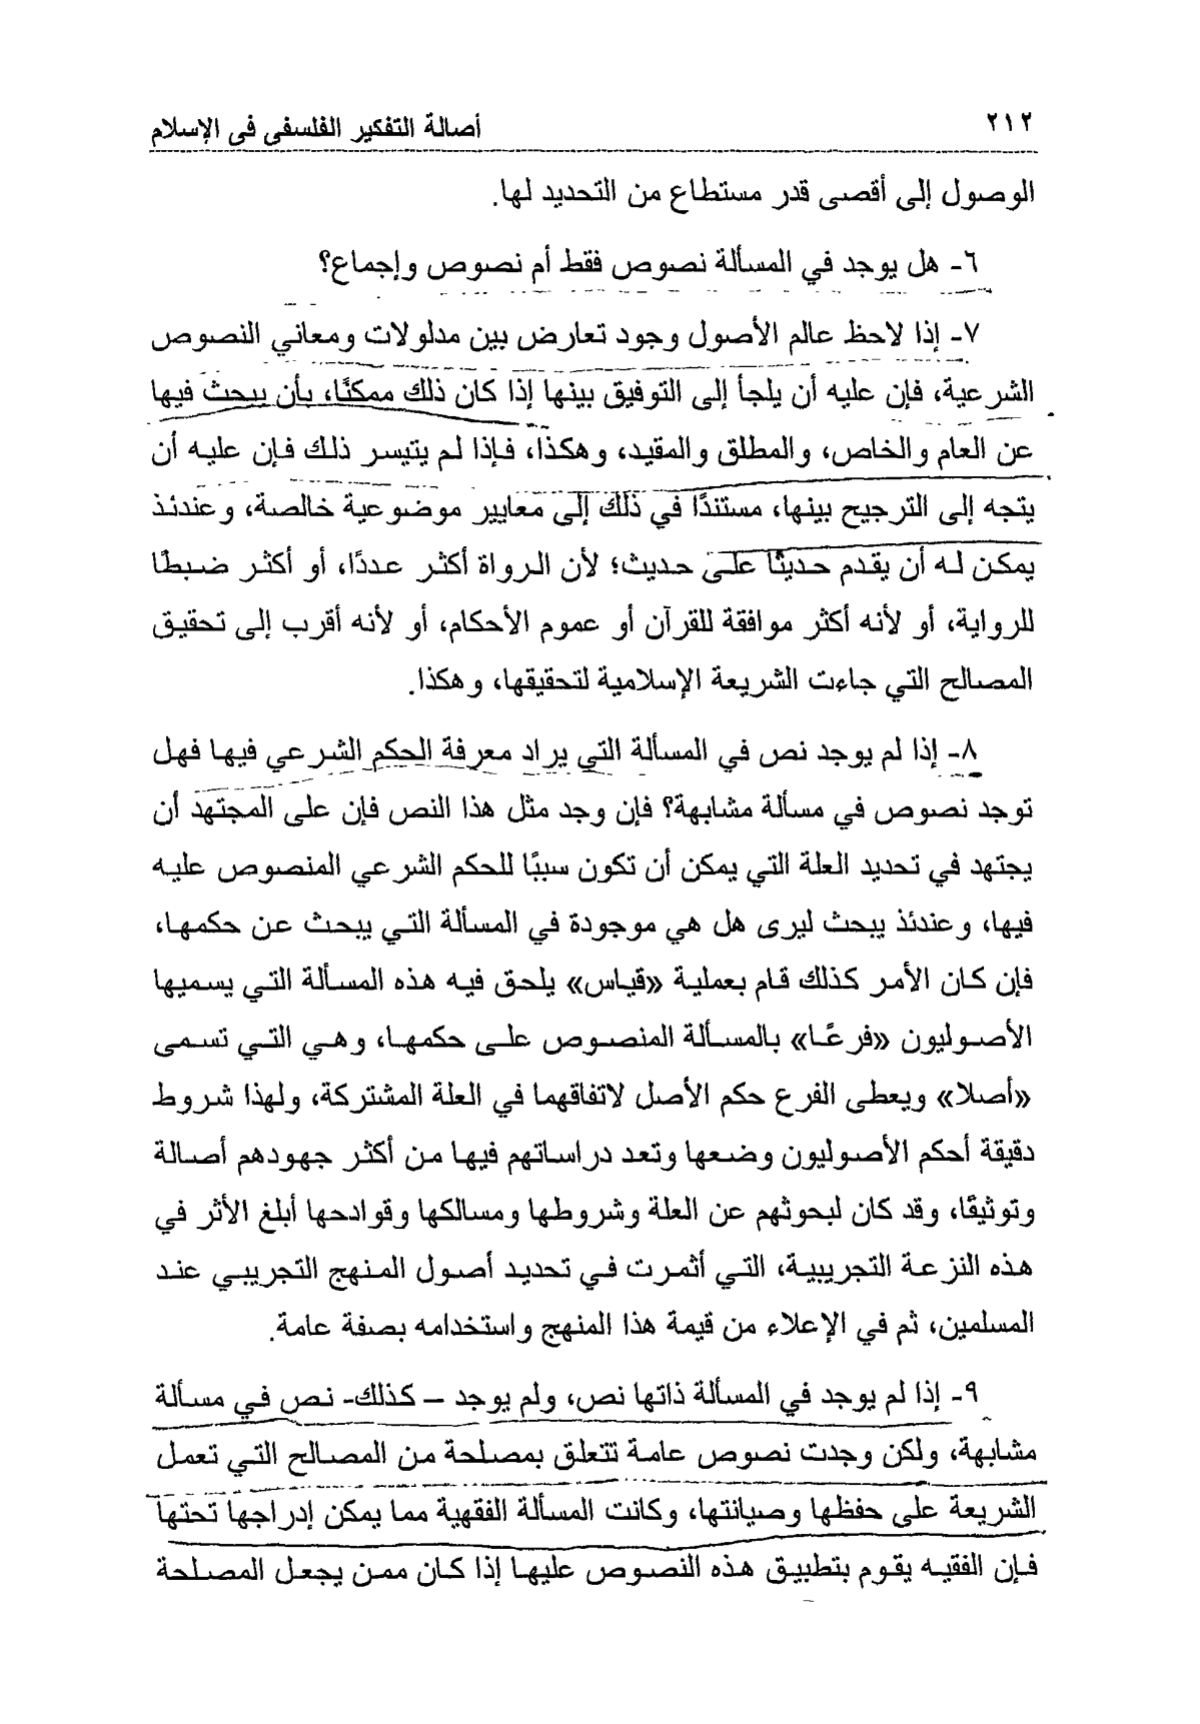 ٢١٢
أصالة التفكير الفلسفى فى الإسلام
الوصول إلى أقصى قدر مستطاع من التحديد لها.
٦- هل يوجد في المسألة نصوص فقط أم نصوص وإجماع؟
٧- إذا لاحظ عالم الأصول وجود تعارض بين مدلولات ومعاني النصوص
الشرعية، فإن عليه أن يلجأ إلى التوفيق بينها إذا كان ذلك ممكنًا، بأن يبحث فيها
عن العام والخاص، والمطلق والمقيد، وهكذا، فإذا لم يتيسر ذلك فإن عليه أن
يتجه إلى الترجيح بينها، مستندًا في ذلك إلى معايير موضوعية خالصة، وعندئذ
يمكن له أن يقدم حديثًا على حديث؛ لأن الرواة أكثر عددًا، أو أكثر ضبطًا
للرواية، أو لأنه أكثر موافقة للقرآن أو عموم الأحكام، أو لأنه أقرب إلى تحقيق
المصالح التي جاءت الشريعة الإسلامية لتحقيقها، وهكذا.
٨- إذا لم يوجد نص في المسألة التي يراد معرفة الحكم الشرعي فيها فهل
توجد نصوص في مسألة مشابهة؟ فإن وجد مثل هذا النص فإن على المجتهد أن
يجتهد في تحديد العلة التي يمكن أن تكون سببًا للحكم الشرعي المنصوص عليه
فيها، وعندئذ يبحث ليرى هل هي موجودة في المسألة التي يبحث عن حكمها،
فإن كان الأمر كذلك قام بعملية «قياس» يلحق فيه هذه المسألة التي يسميها
الأصوليون «فرعًا» بالمسألة المنصوص على حكمها، وهي التي تسمى
«أصلا» ويعطى الفرع حكم الأصل لاتفاقهما في العلة المشتركة، ولهذا شروط
دقيقة أحكم الأصوليون وضعها وتعد دراساتهم فيها من أكثر جهودهم أصالة
وتوثيقًا، وقد كان لبحوثهم عن العلة وشروطها ومسالكها وقوادحها أبلغ الأثر في
هذه النزعة التجريبية، التي أثمرت في تحديد أصول المنهج التجريبي عند
المسلمين، ثم في الإعلاء من قيمة هذا المنهج واستخدامه بصفة عامة.
٩- إذا لم يوجد في المسألة ذاتها نص، ولم يوجد – كذلك- نص في مسألة
مشابهة، ولكن وجدت نصوص عامة تتعلق بمصلحة من المصالح التي تعمل
الشريعة على حفظها وصيانتها، وكانت المسألة الفقهية مما يمكن إدراجها تحتها
فإن الفقيه يقوم بتطبيق هذه النصوص عليها إذا كان ممن يجعل المصلحة